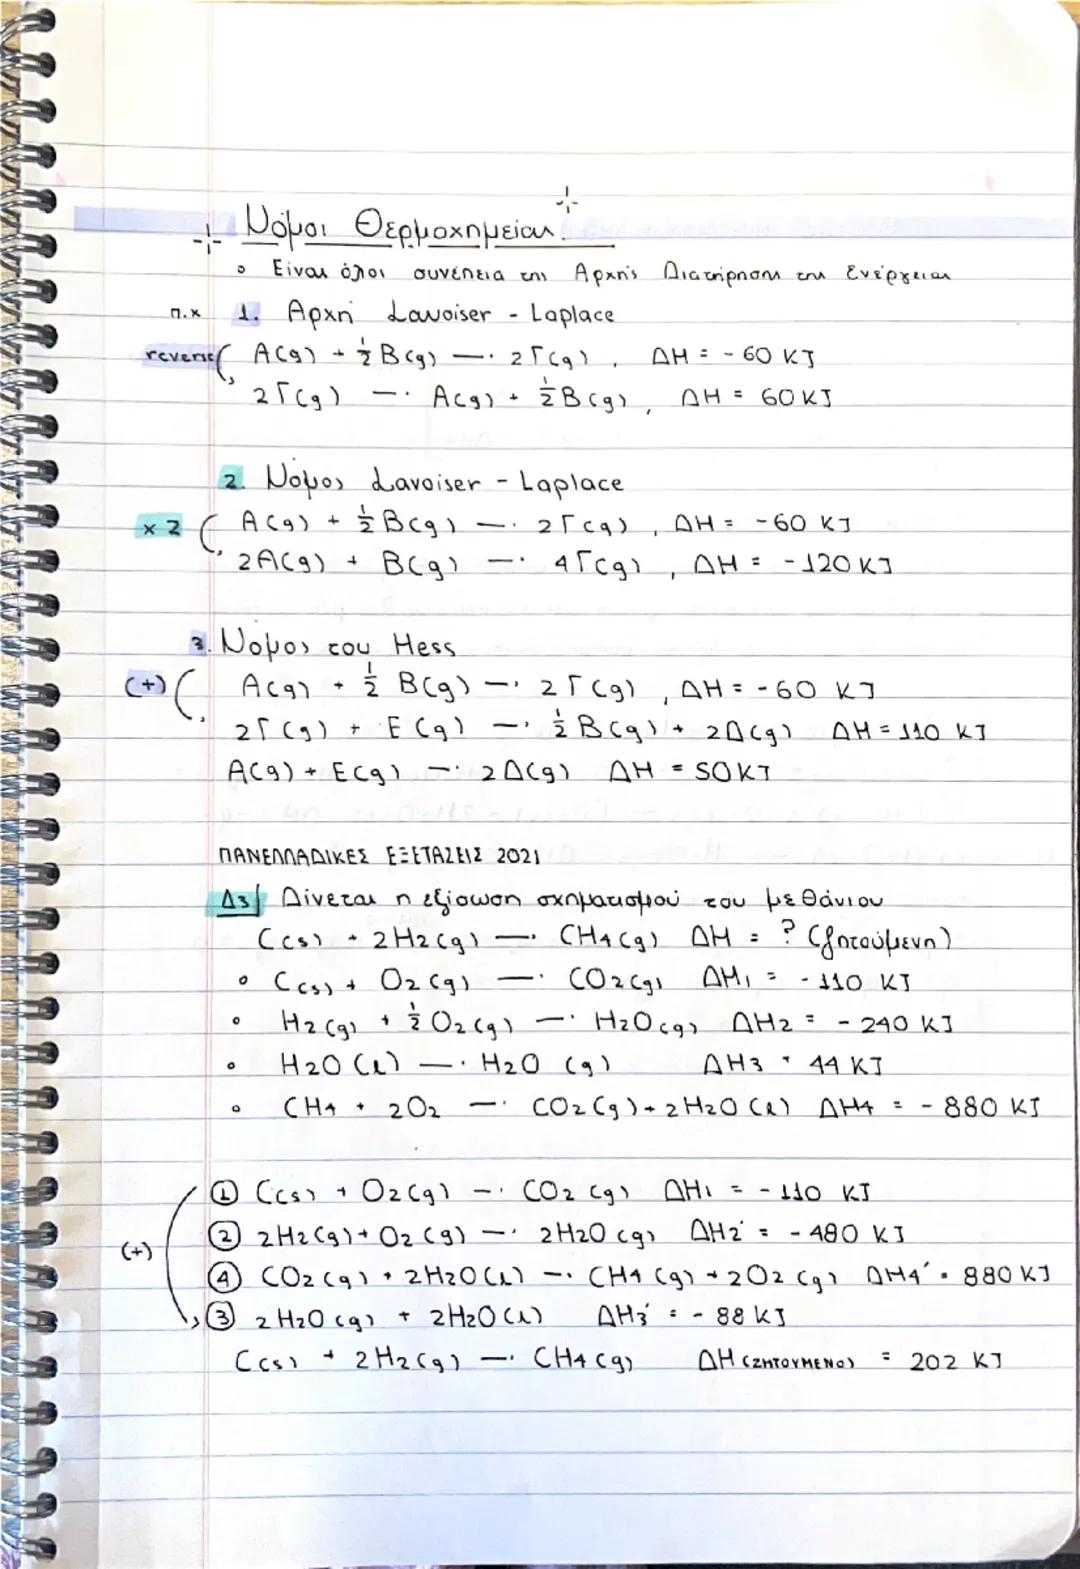 Νόμοι Θερμοχημείας.
◦ Είναι όλοι συνέπεια της Αρχής Διατήρησης της Ενέργειας
π.χ 1. Αρχή Lavoiser - Laplace
reverse A(g) + ½ B(g) → 2Γ(g), ΔH = - 60 KJ
2Γ(g) → A(g) + ½ B(g), ΔH = 60 KJ
2. Νόμος Lavoiser - Laplace
x 2 A(g) + ½ B(g) → 2Γ(g), ΔH = -60 KJ
2A(g) + B(g) → 4Γ(g), ΔH = -120 KJ
3. Νόμος του Hess
(+) A(g) + ½ B(g) → 2Γ(g), ΔH = -60 KJ
2Γ(g) + E(g) → ½ B(g) + 2Δ(g) ΔH = 110 KJ
A(g) + E(g) → 2Δ(g) ΔH = 50 KJ
ΠΑΝΕΛΛΑΔΙΚΕΣ ΕΞΕΤΑΣΕΙΣ 2021
Δ3/ Δίνεται η εξίσωση σχηματισμού του μεθάνιου
C(s) + 2H2(g) → CH4(g) ΔH = ? (ζητούμενη)
◦ C(s) + O2(g) → CO2(g) ΔH1 = -110 KJ
◦ H2(g) + ½ O2(g) → H2O(g) ΔH2 = - 240 KJ
◦ H2O(l) → H2O (g) ΔH3 = 44 KJ
◦ CH4 + 2O2 → CO2(g) + 2H2O(l) ΔH4 = - 880 KJ
① C(s) + O2(g) → CO2(g) ΔH1 = -110 KJ
(+) ② 2H2(g) + O2(g) → 2H2O(g) ΔH2' = - 480 KJ
④ CO2(g) + 2H2O(l) → CH4(g) + 2O2(g) ΔH4' = 880 KJ
③ 2H2O(g) + 2H2O(l) ΔH3' = - 88 KJ
C(s) + 2H2(g) → CH4(g) ΔH (ΖΗΤΟΥΜΕΝΟ) = 202 KJ